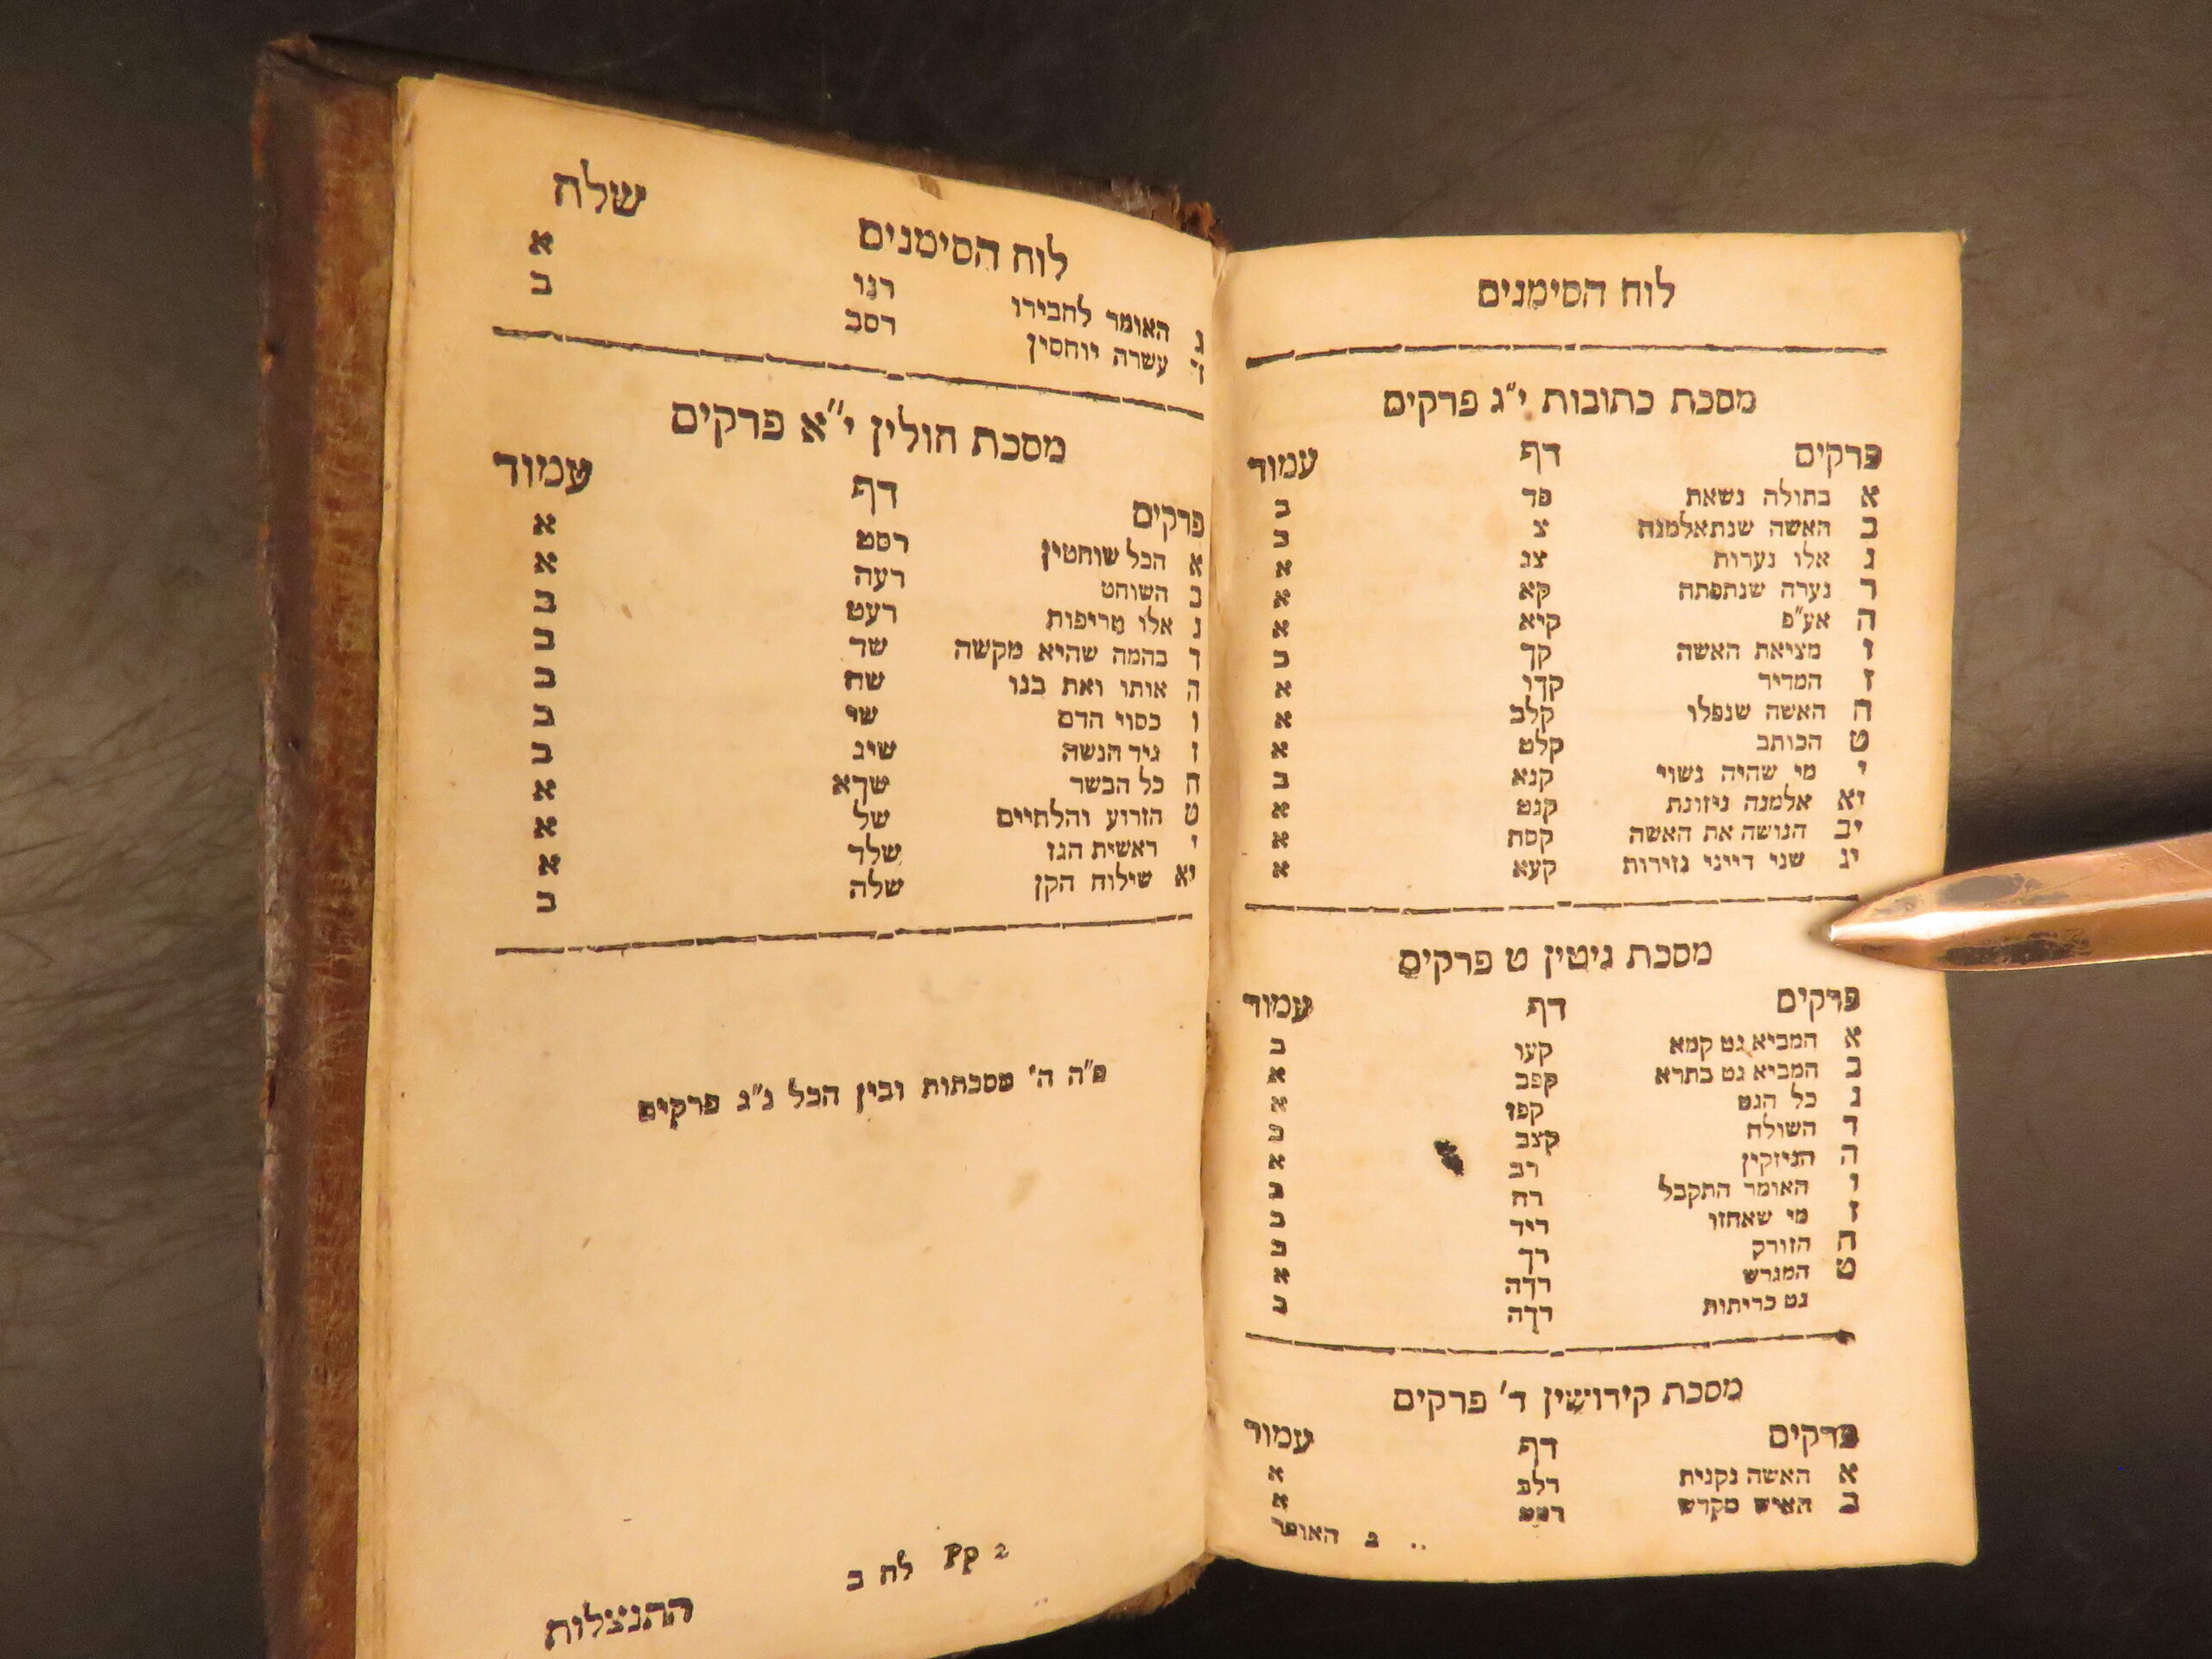 לוח הסימנים
מסכת כתובות י"ג פרקים
פרקים דף עמוד
א בתולה נשאת פד ב
ב האשה שנתאלמנה צ ב
ג אלו נערות צג א
ד נערה שנתפתה קא א
ה אע"פ קיא א
ו מציאת האשה קך ב
ז המדיר קדו א
ח האשה שנפלו קלב א
ט הכותב קלט א
י מי שהיה נשוי קנא ב
יא אלמנה ניזונת קנט א
יב הנושה את האשה קסח א
יג שני דייני גזירות קעא א
מסכת גיטין ט פרקים
פרקים דף עמוד
א המביא גט קמא קעו ב
ב המביא גט בתרא קפב א
ג כל הגט קפז א
ד השולח קצב ב
ה הניזקין רב א
ו האומר התקבל רח ב
ז מי שאחזו ריד ב
ח הזורק רך ב
ט המגרש רדה א
גט כריתות רדה ב
מסכת קידושין ד' פרקים
פרקים דף עמוד
א האשה נקנית רלב א
ב האיש מקדש א
ג האומר
שלה
לוח הסימנים
ג האומר לחבירו רנו א
ד עשרה יוחסין רסב ב
מסכת חולין י"א פרקים
פרקים דף עמוד
א הכל שוחטין רסט א
ב השוחט רעה א
ג אלו טריפות רעט ב
ד בהמה שהיא מקשה שד ב
ה אותו ואת בנו שח ב
ו כסוי הדם שי ב
ז גיד הנשה שיג ב
ח כל הבשר שדא א
ט הזרוע והלחיים של א
י ראשית הגז שלד א
יא שילוח הקן שלה ב
ס"ה ה' מסכתות ובין הכל נ"ג פרקים
Pp 2 לח ב
התנצלות